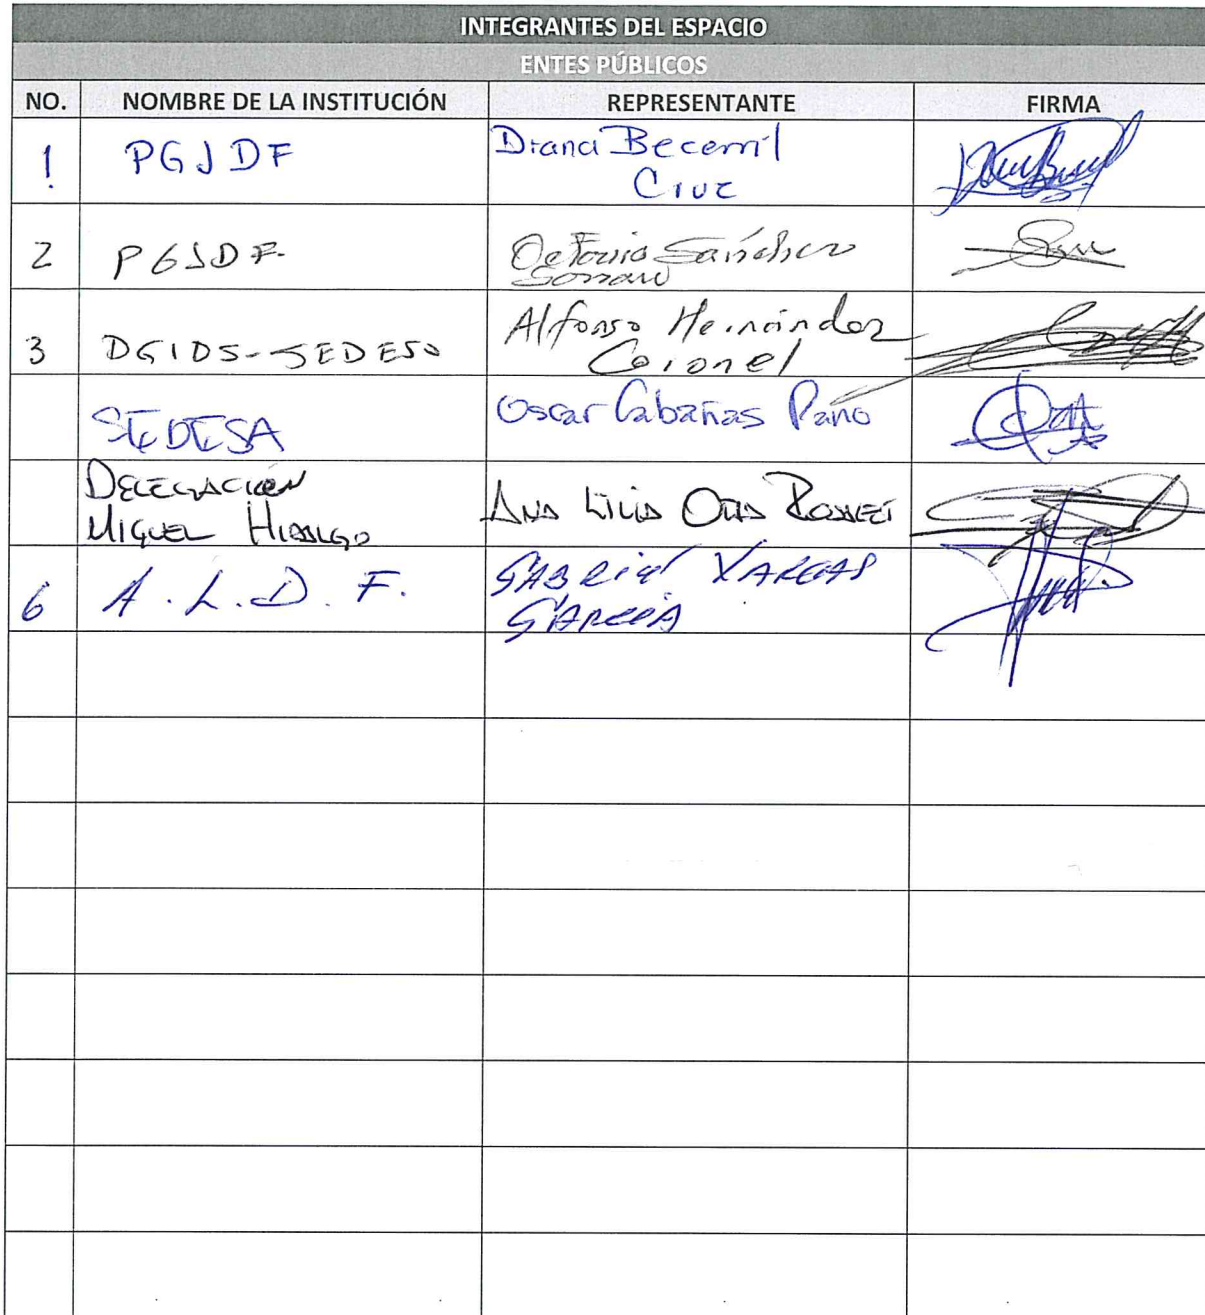 INTEGRANTES DEL ESPACIO
ENTES PÚBLICOS
NO. NOMBRE DE LA INSTITUCIÓN REPRESENTANTE FIRMA
1 PGJDF Diana Becerril
Cruz
2 PGJDF. Octavio Sánchez
3 DGIDS-SEDESO Alfonso Hernández
Coronel
SEDESA Oscar Cabañas
DELEGACIÓN
MIGUEL HIDALGO
ANA LILIA
6 A.L.D.F. GABRIEL VARGAS
GARCÍA